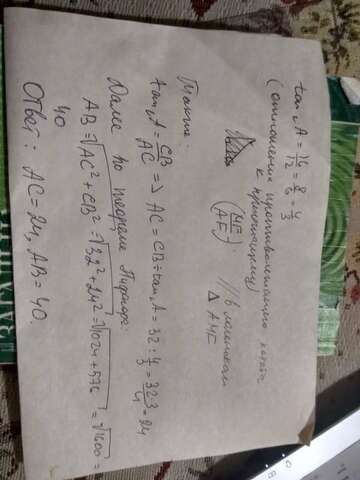 tan∠A = 16/12 = 8/6 = 4/3
(отношение противолежащего катета
к прилежащему)
(MF/AF) // в маленьком
△ AMF
Также:
tan∠A = CB/AC => AC = CB ÷ tan∠A = 32 : 4/3 = 32·3/4 = 24
Далее по теореме Пифагора:
AB = √AC² + CB² = √32² + 24² = √1024 + 576 = √1600 =
40
Ответ: AC = 24, AB = 40.